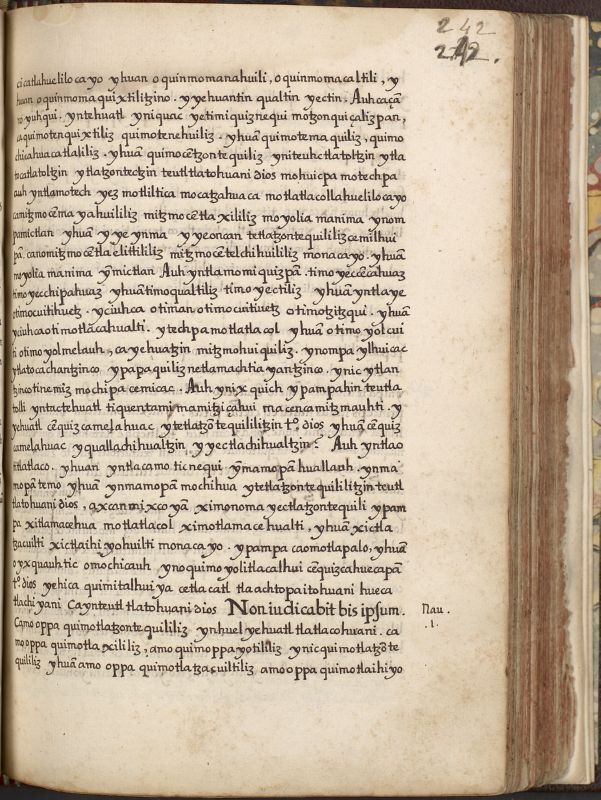 242
242.
ci catlahuelilocayo yhuan oquinmomanahuili, oquinmomacaltili, y
huan oquinmomaquixtilitzino. yyehuantin qualtin yectin. Auh caçã
no yuhqui. yntehuatl yniquac yetimiquiz nequi motzonquiçalizpan,
ca quimotenquixtiliz quimotenehuiliz. yhuã quimotemaquiliz, quimo
chicahuacatlaliliz. yhuã quimocẽtzontequiliz yniteuhctlatoltzin ytla
tocatlatoltzin ytlatzontectzin teutl tlatohuani dios mohuicpa motechpa
auh yntlamotech yez motliltica mocatzahuaca motlatlacollahuelilocayo
camitzmocẽmayahuililiz mitzmocẽtlaxililiz moyolia manima ynom
pa mictlan yhuã y ye ynma y yeoncan tetlatzontequililizcemilhui
pã. canomitzmocẽtlaclittililiz mitzmocẽtelchihuililiz monacayo. yhuã
moyolia manima ỹmictlan Auh yntlamomiquizpã. timoyeccẽcahuaz
timoyecchipahuaz yhuã timoqualtiliz timoyectiliz yhuã yntlaye
otimocuitihuetz. yciuhca otiman otimocuitiuetz otimotzitzqui. yhuã
yciuhca otimotlãcahualti. ytechpa motlatlacol yhuã otimoyolcui
ti otimoyolmelauh, ca yehuatzin mitzmohuiquiliz. ynompa ylhuicac
ytlatocachantzinco ypapaquiliznetlamachtiayantzinco. ynic ytlan
tzinco tinemiz mochipa cemicac. Auh ynixquich ypampahin teutla
tolli yntac tehuatl tiquentami mamitziçahui macencamitzmauhti. y
yehuatl cẽquizcamelahuac ytetlatzõtequililitzin tº. dios yhuã cẽquiz
camelahuac yquallachihualtzin yyectlachihualtzin? Auh yntlao
titlatlaco. yhuan yntlacamo ticnequi ỹmamopã huallauh. ynma
mopãtemo yhuã ynmamopã mochihua ytetlatzontequililitzin teutl
tlatohuani dios, axcan mixcoyã ximonoma yectlatzontequili ypam
pa xitlamacehua motlatlacol ximotlamacehualti, yhuã xictla
tzacuilti xictlaihiyohuilti monacayo. ypampa caomotlapalo, yhuã
oyxquauhtic omochicauh ynoquimoyolitlacalhui cẽquizcahuecapã
tº. dios yehica quimitalhuiya cetlacatl tlaachtopaitohuani hueca
tlachiyani Cayn teutl tlatohuani dios Non iudicabit bis ipsum. Nau.
Camo oppa quimotlatzontequililiz ynhuel yehuatl tlatlacohuani. ca .1.
mo oppa quimotlaxililiz, amo quimoppayotililiz ynic quimotlatzõte
quililiz yhuã amo oppa quimotlatzacuiltiliz amo oppa quimotlaihiyo